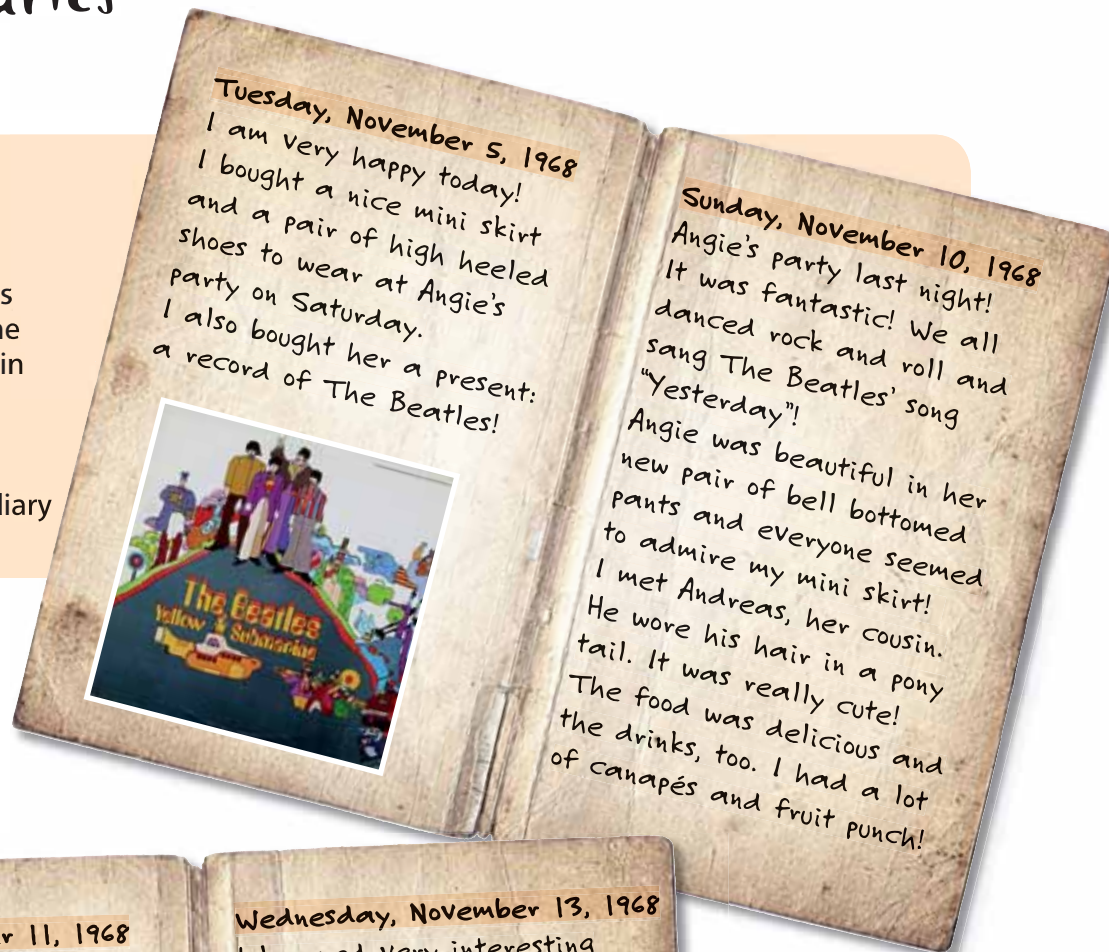 Tuesday, November 5, 1968
I am very happy today!
I bought a nice mini skirt
and a pair of high heeled
shoes to wear at Angie's
party on Saturday.
I also bought her a present:
a record of The Beatles!
The Beatles
Yellow Submarine
Sunday, November 10, 1968
Angie's party last night!
It was fantastic! We all
danced rock and roll and
sang The Beatles' song
"Yesterday"!
Angie was beautiful in her
new pair of bell bottomed
pants and everyone seemed
to admire my mini skirt!
I met Andreas, her cousin.
He wore his hair in a pony
tail. It was really cute!
The food was delicious and
the drinks, too. I had a lot
of canapés and fruit punch!
in
diary
11, 1968
Wednesday, November 13, 1968
very interesting